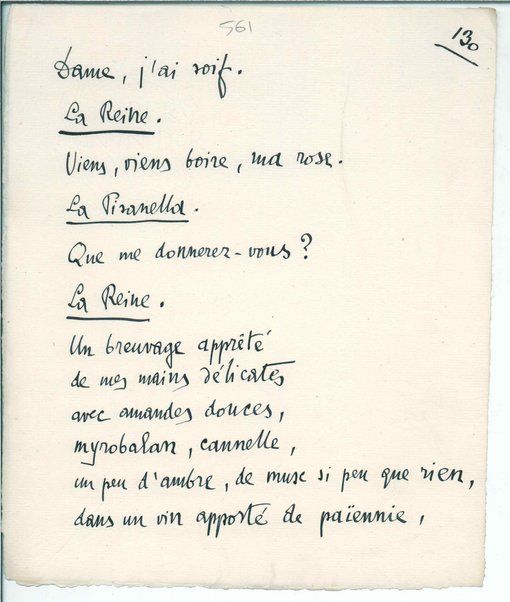 561
130
Dame, j'ai soif.
La Reine.
Viens, viens boire, ma rose.
La Pisanella.
Que me donnerez-vous?
La Reine.
Un breuvage apprêté
de mes mains délicates
avec amandes douces,
myrobalan, cannelle,
un peu d'ambre, de musc si peu que rien,
dans un vin apporté de païennie,